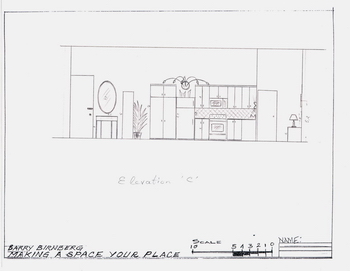 Elevation 'C'
BARRY BIRNBERG
MAKING A SPACE YOUR PLACE
SCALE
10 5 4 3 2 1 0
NAME: